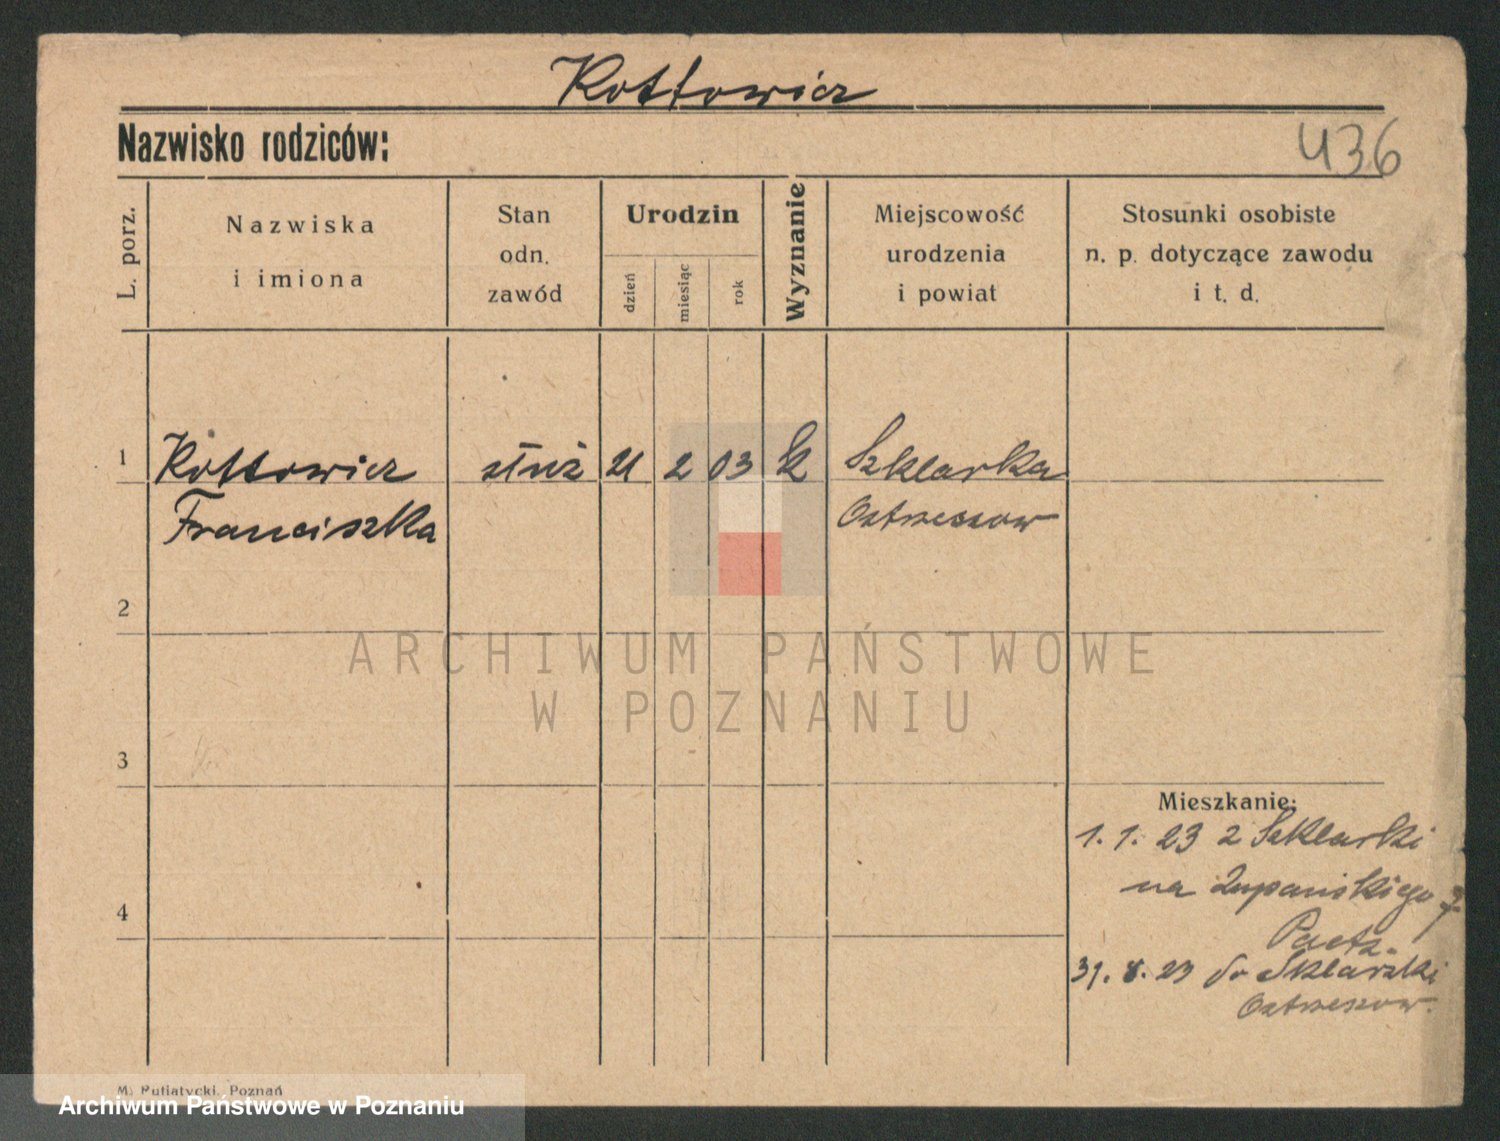 Kottowicz
Nazwisko rodziców:
436
L. porz.
Nazwiska
i imiona
Stan
odn.
zawód
Urodzin
dzień
miesiąc
rok
Wyznanie
Miejscowość
urodzenia
i powiat
Stosunki osobiste
n. p. dotyczące zawodu
i t. d.
1 Kottowicz służ 21 2 03 k Szklarka
Franciszka Ostrzeszow
2
3
4
Mieszkanie:
1. 1. 23 z Szklarki
na Żupańskiego 7
31. 8. 23 do Szklarki
Ostrzeszow.
M. Putiatycki, Poznań
ARCHIWUM PAŃSTWOWE
W POZNANIU
Archiwum Państwowe w Poznaniu